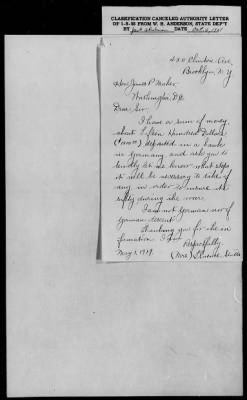 CLASSIFICATION CANCELED AUTHORITY LETTER
OF 1-8-58 FROM W. H. ANDERSON, STATE DEPT
BY DATE
Ave,
Brooklyn, N.Y.
Hon James P Maher
Washington, D.C.
Dear Sir:
I have a sum of money
about Fifteen Hundred Dollars
deposited in a bank
in Germany and ask you to
kindly let me know what steps
it will be necessary to take if
any, in order to insure its
safety during the war.
I am not German nor of
German descent.
Thanking you for the in
formation I am
Respectfully
May 1, 1917.
(Mrs)